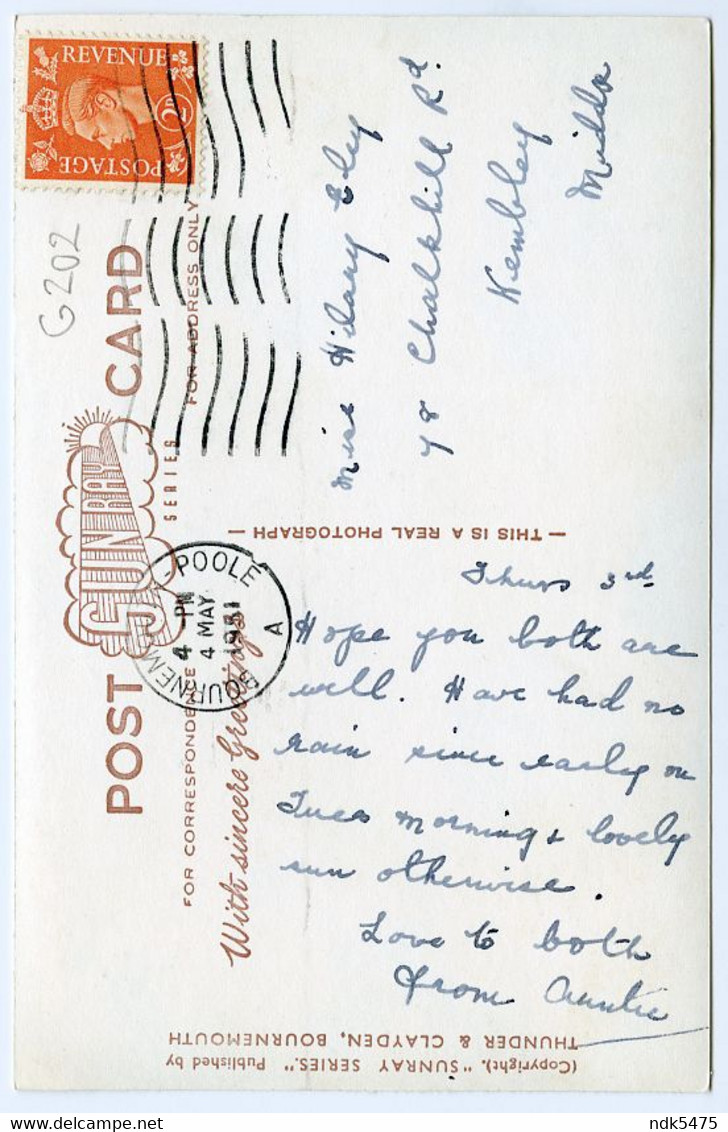 REVENUE
2D
POSTAGE
G202
POST CARD
SUNRAY
SERIES
FOR CORRESPONDENCE
FOR ADDRESS ONLY
With sincere Greetings
BOURNEMOUTH-POOLE
4 PM
4 MAY
1951
A
— THIS IS A REAL PHOTOGRAPH —
Miss Hilary Eley
78 Chalkhill Rd.
Wembley
Middx
Thurs 3rd
Hope you both are
well. Have had no
rain since early on
Tues morning & lovely
sun otherwise.
Love to both
from Auntie
(Copyright). "SUNRAY SERIES." Published by
THUNDER & CLAYDEN, BOURNEMOUTH
delcampe.net
ndk5475